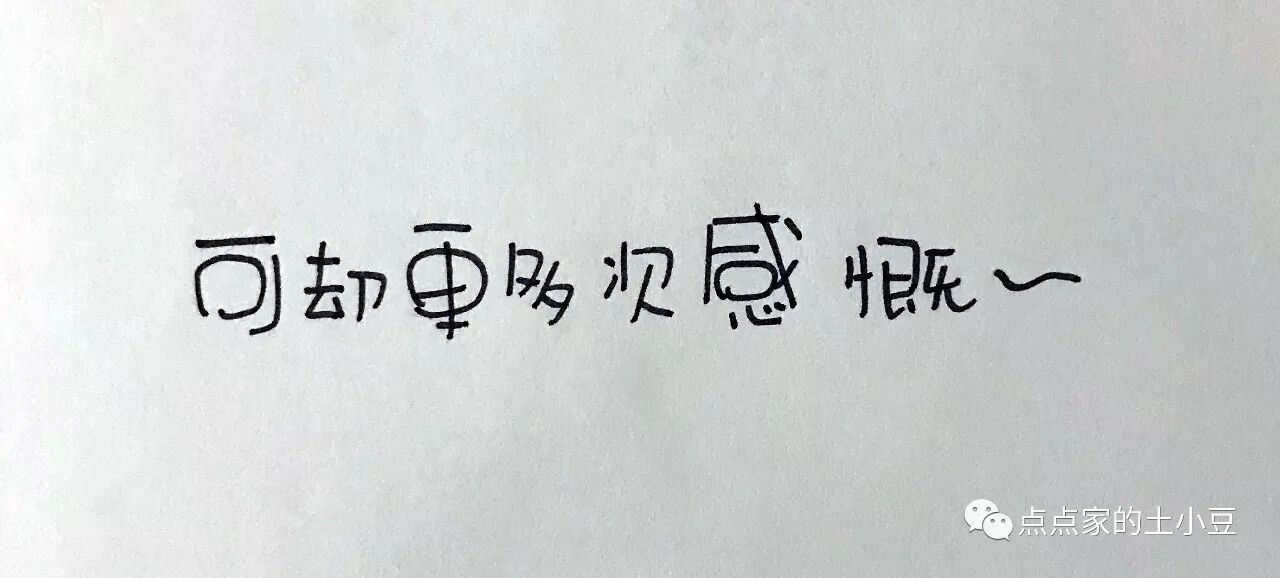 可却更多次感慨～
点点家的土小豆